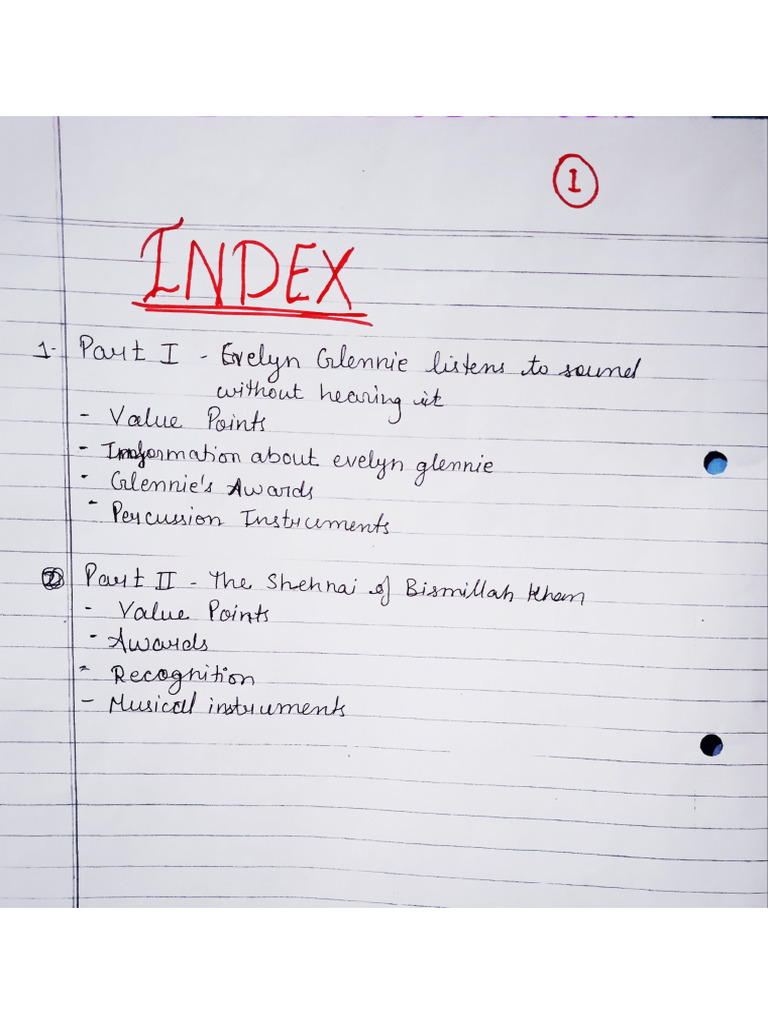 1
INDEX
1- Part I - Evelyn Glennie listens to sound
without hearing it
- Value Points
- Information about evelyn glennie
- Glennie's Awards
- Percussion Instruments
2 Part II - The Shehnai of Bismillah Khan
- Value Points
- Awards
- Recognition
- Musical instruments